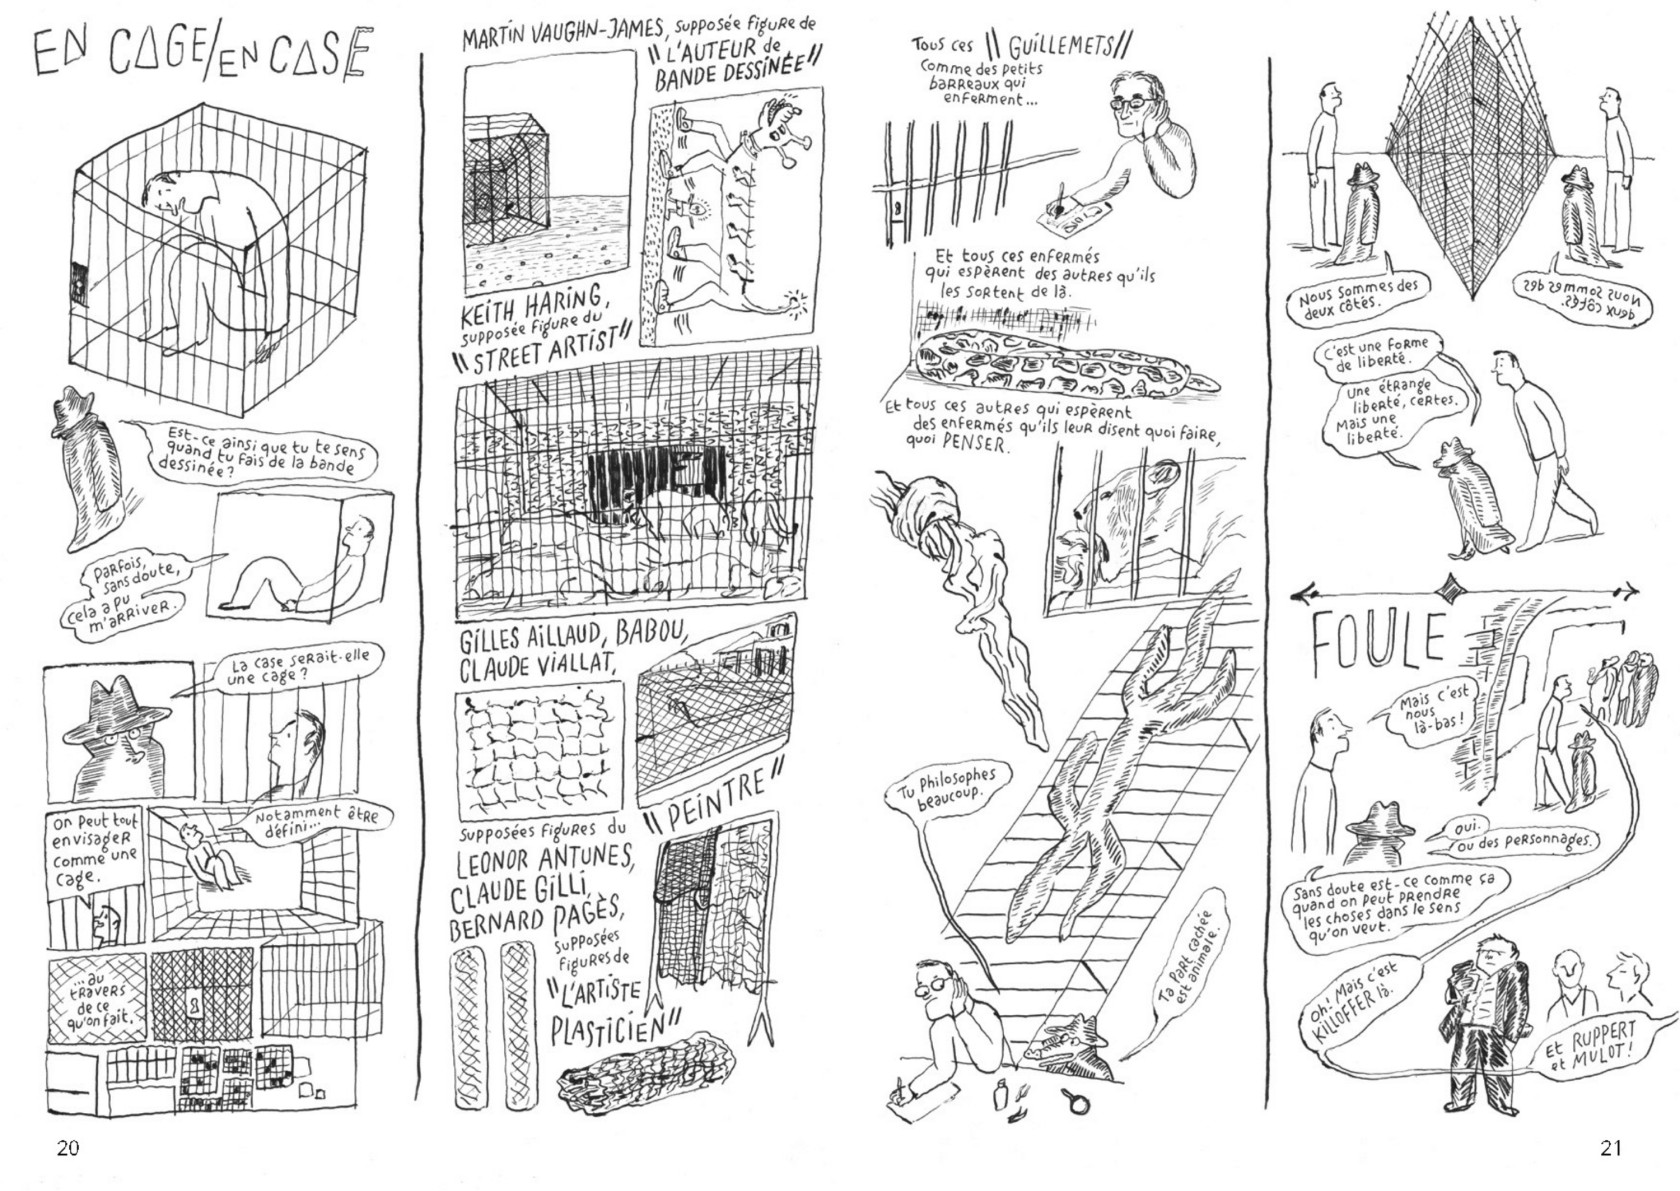 EN CAGE/EN CASE
Est-ce ainsi que tu te sens
quand tu fais de la bande
dessinée?
Parfois,
sans doute,
cela a pu
m'arriver.
La case serait-elle
une cage?
On peut tout
envisager
comme une
cage.
Notamment être
défini...
...au
travers
de ce
qu'on fait.
MARTIN VAUGHN-JAMES, supposée figure de
"L'AUTEUR de
BANDE DESSINÉE"
KEITH HARING,
supposée figure du
"STREET ARTIST"
GILLES AILLAUD, BABOU,
CLAUDE VIALLAT,
supposées figures du
"PEINTRE"
LEONOR ANTUNES,
CLAUDE GILLI,
BERNARD PAGÈS,
supposées
figures de
"L'ARTISTE
PLASTICIEN"
20
Tous ces "GUILLEMETS"
comme des petits
barreaux qui
enferment...
Et tous ces enfermés
qui espèrent des autres qu'ils
les sortent de là.
Et tous ces autres qui espèrent
des enfermés qu'ils leur disent quoi faire,
quoi PENSER.
Tu philosophes
beaucoup.
Ta part cachée
est animale.
Nous sommes des
deux côtés.
Nous sommes des
deux côtés.
C'est une forme
de liberté.
Une étrange
liberté, certes.
Mais une
liberté.
FOULE
Mais c'est
nous
là-bas!
Oui.
Ou des personnages.
Sans doute est-ce comme ça
quand on peut prendre
les choses dans le sens
qu'on veut.
Oh! Mais c'est
KILLOFFER là.
Et RUPPERT
et MULOT!
21